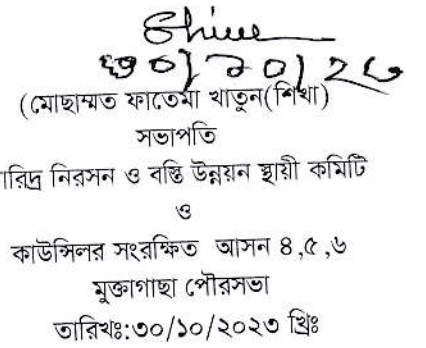 Shikha
৩০/১০/২৩
(মোছাম্মত ফাতেমা খাতুন(শিখা)
সভাপতি
ারিদ্র নিরসন ও বস্তি উন্নয়ন স্থায়ী কমিটি
ও
কাউন্সিলর সংরক্ষিত আসন ৪,৫,৬
মুক্তাগাছা পৌরসভা
তারিখঃ:৩০/১০/২০২৩ খ্রিঃ